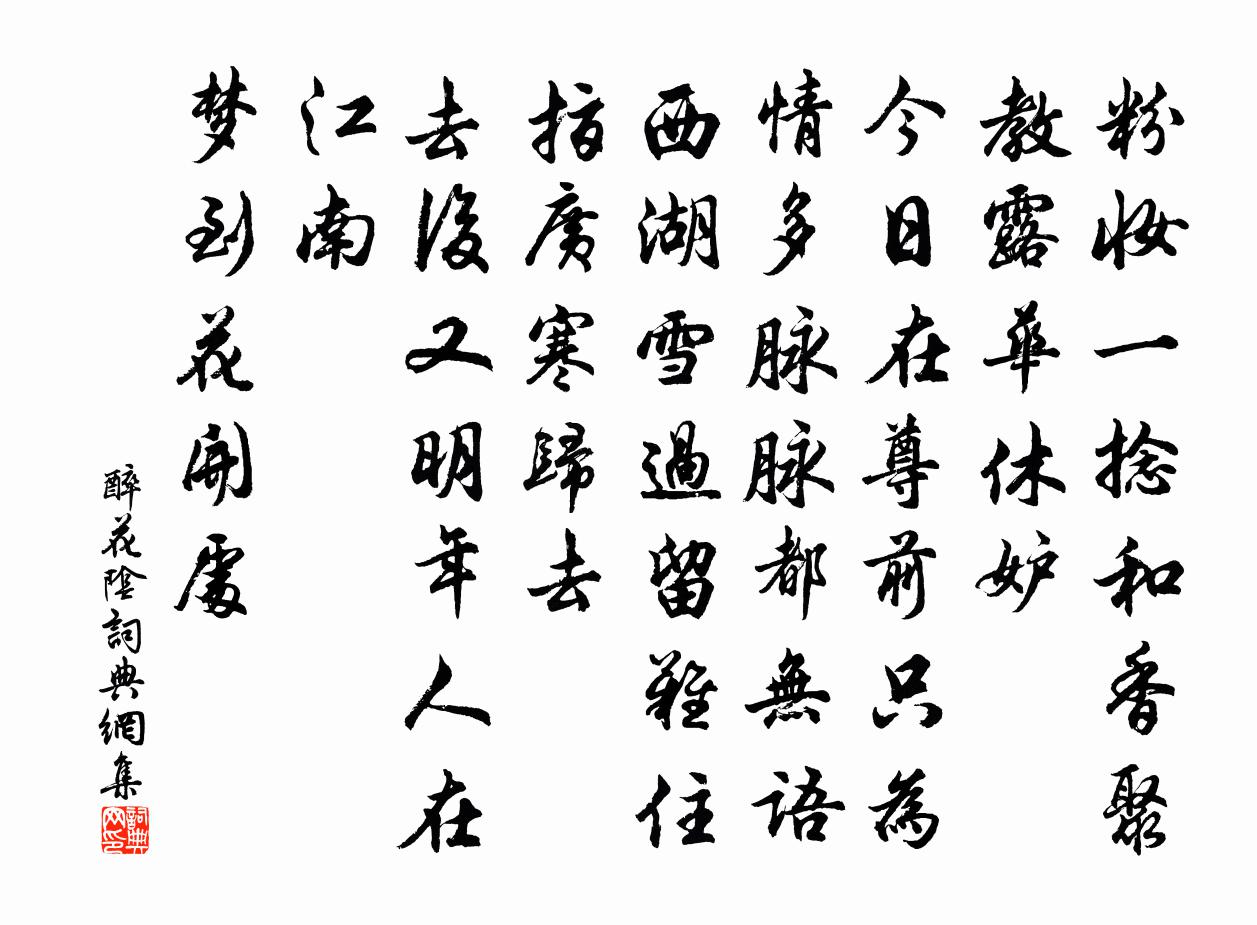 粉妆一捻和香聚
教露华休妒
今日在尊前只為
情多脉脉都無語
西湖雪過留難住
指廣寒歸去
去後又明年人在
江南
梦到花開處
醉花陰詞典網集
詞典网印